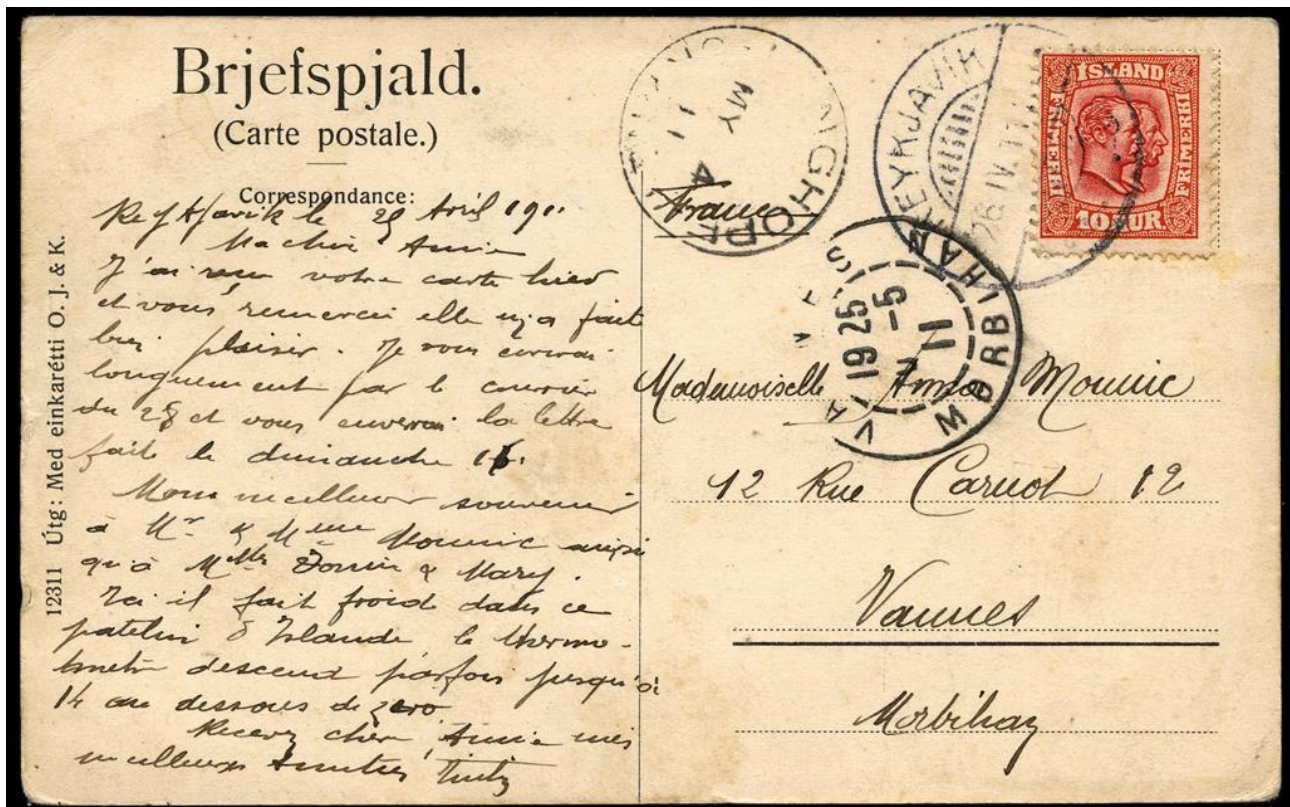 Brjefspjald.
(Carte postale.)
Correspondance:
Reykjavik le 25 Avril 1911
Ma chère Annie
J'ai reçu votre carte hier
et vous remercie elle m'a fait
bien plaisir. Je vous écrirai
longuement par le courrier
du 28 et vous enverrai la lettre
faite le dimanche 16.
Mon meilleur souvenir
à Mr & Mme Mounic ainsi
qu'à Melles & Mary.
Ici il fait froid dans ce
patelin d'Islande le thermo-
mètre descend parfois jusqu'à
14 au dessous de zero
Recevez chère Annie mes
meilleures Amitiés
12311 Útg: Med einkarétti O. J. & K.
NGHOPE
MY 4
11
REYKJAVIK
26.IV.11
ISLAND
FRIMERKI
10 AUR
France
VANNES
MORBIHAN
1925
5-5
11
Mademoiselle Anna Mounic
12 Rue Carnot 12
Vannes
Morbihan